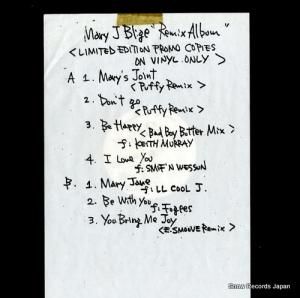 Mary J Blige "Remix Album"
<LIMITED EDITION PROMO COPIES
ON VINYL ONLY>
A 1. Mary's Joint
<Puffy Remix>
2. Don't go
<Puffy Remix>
3. Be Happy
<Bad Boy Butter Mix>
f: KEITH MURRAY
4. I Love You
f: SMIF'N WESSUN
B. 1. Mary Jane
f: LL COOL J.
2. Be With You
f: Fugees
3. You Bring Me Joy
<E-SMOOVE Remix>
Snow Records Japan